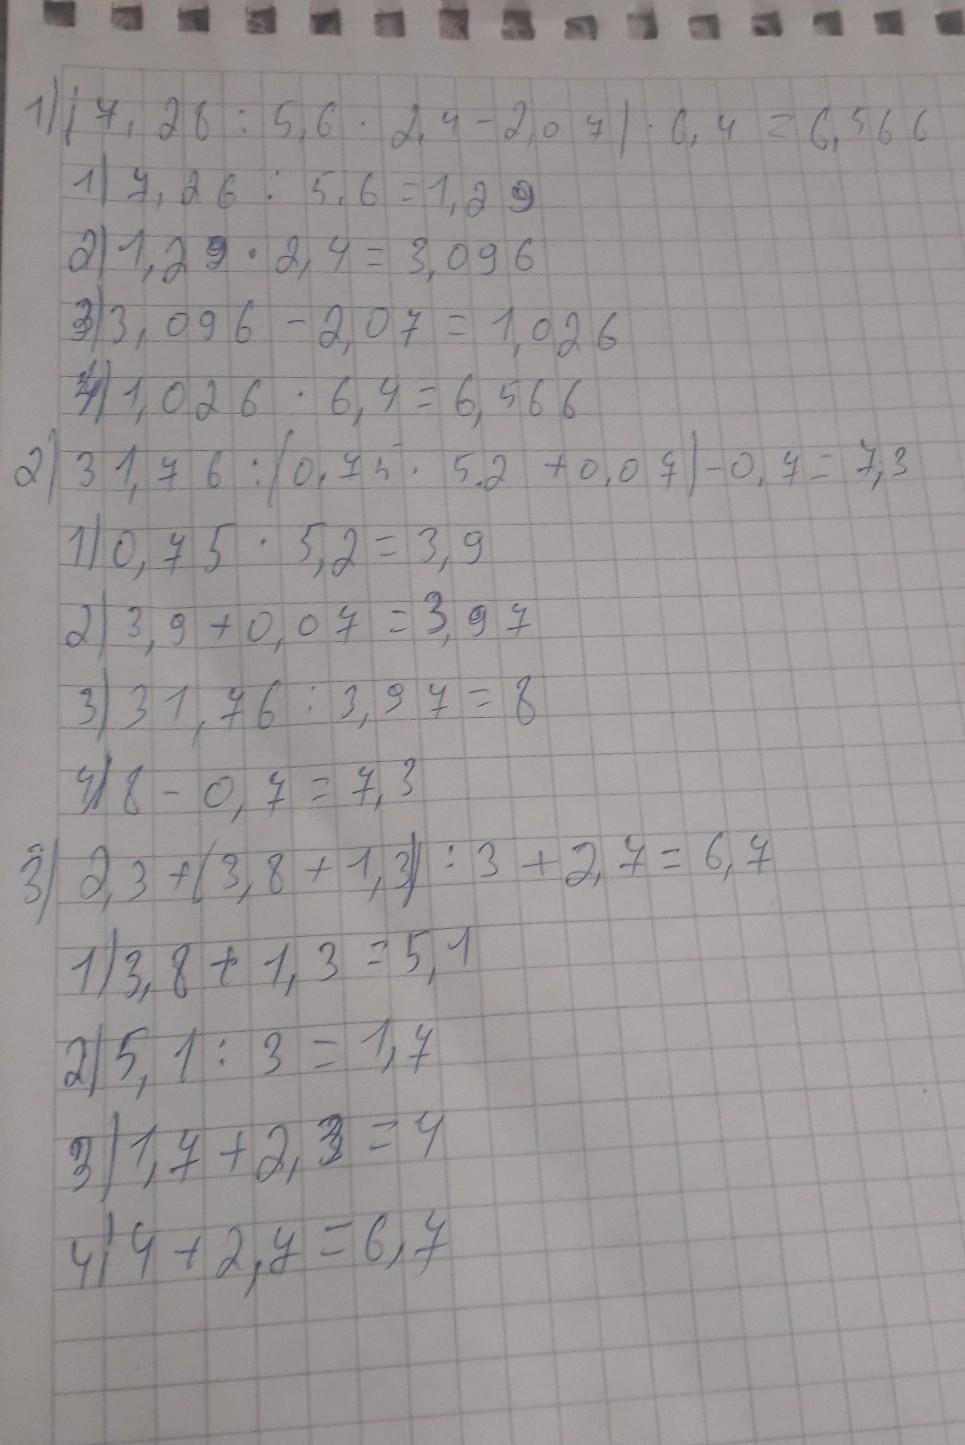 1) (7,26 : 5,6 · 2,4 - 2,07) · 6,4 = 6,566
1) 7,26 : 5,6 = 1,29
2) 1,29 · 2,4 = 3,096
3) 3,096 - 2,07 = 1,026
4) 1,026 · 6,4 = 6,566
2) 31,76 : (0,75 · 5,2 + 0,07) - 0,7 = 7,3
1) 0,75 · 5,2 = 3,9
2) 3,9 + 0,07 = 3,97
3) 31,76 : 3,97 = 8
4) 8 - 0,7 = 7,3
3) 2,3 + (3,8 + 1,3) : 3 + 2,7 = 6,7
1) 3,8 + 1,3 = 5,1
2) 5,1 : 3 = 1,7
3) 1,7 + 2,3 = 4
4) 4 + 2,7 = 6,7